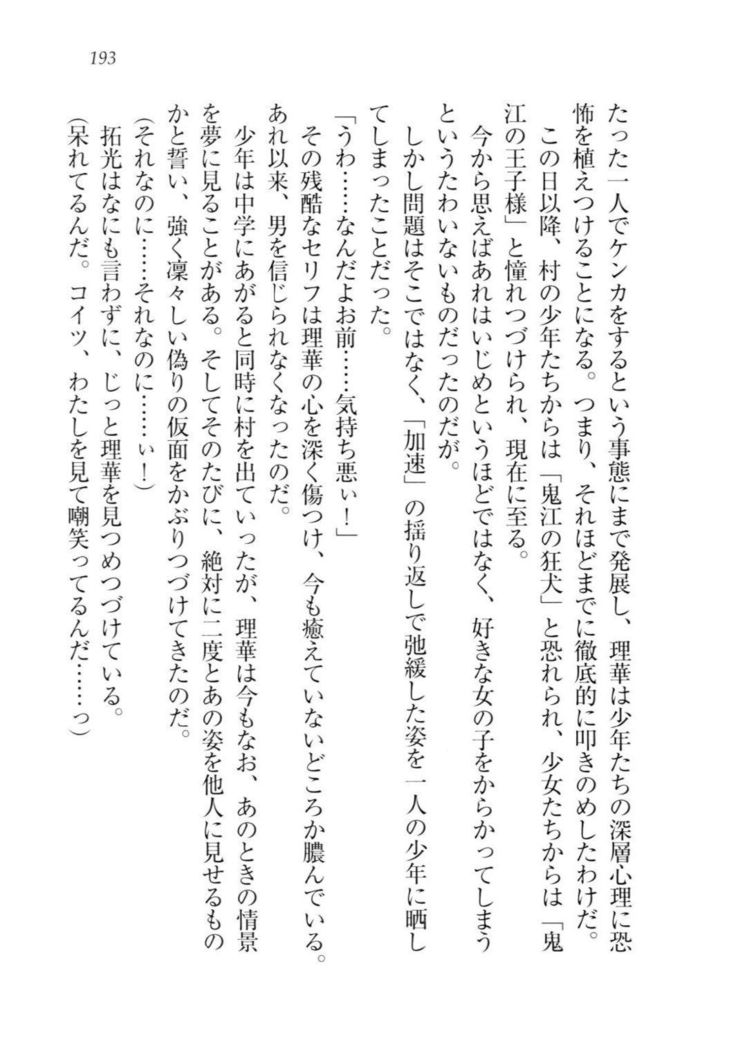 193
たった一人でケンカをするという事態にまで発展し、理華は少年たちの深層心理に恐
怖を植えつけることになる。つまり、それほどまでに徹底的に叩きのめしたわけだ。
この日以降、村の少年たちからは「鬼江の狂犬」と恐れられ、少女たちからは「鬼
江の王子様」と憧れつづけられ、現在に至る。
今から思えばあれはいじめというほどではなく、好きな女の子をからかってしまう
というたわいないものだったのだが。
しかし問題はそこではなく、「加速」の揺り返しで弛緩した姿を一人の少年に晒し
てしまったことだった。
「うわ……なんだよお前……気持ち悪ぃ！」
その残酷なセリフは理華の心を深く傷つけ、今も癒えていないどころか膿んでいる。
あれ以来、男を信じられなくなったのだ。
少年は中学にあがると同時に村を出ていったが、理華は今もなお、あのときの情景
を夢に見ることがある。そしてそのたびに、絶対に二度とあの姿を他人に見せるもの
かと誓い、強く凜々しい偽りの仮面をかぶりつづけてきたのだ。
（それなのに……それなのに……ぃ！）
拓光はなにも言わずに、じっと理華を見つめつづけている。
（呆れてるんだ。コイツ、わたしを見て嘲笑ってるんだ……っ）